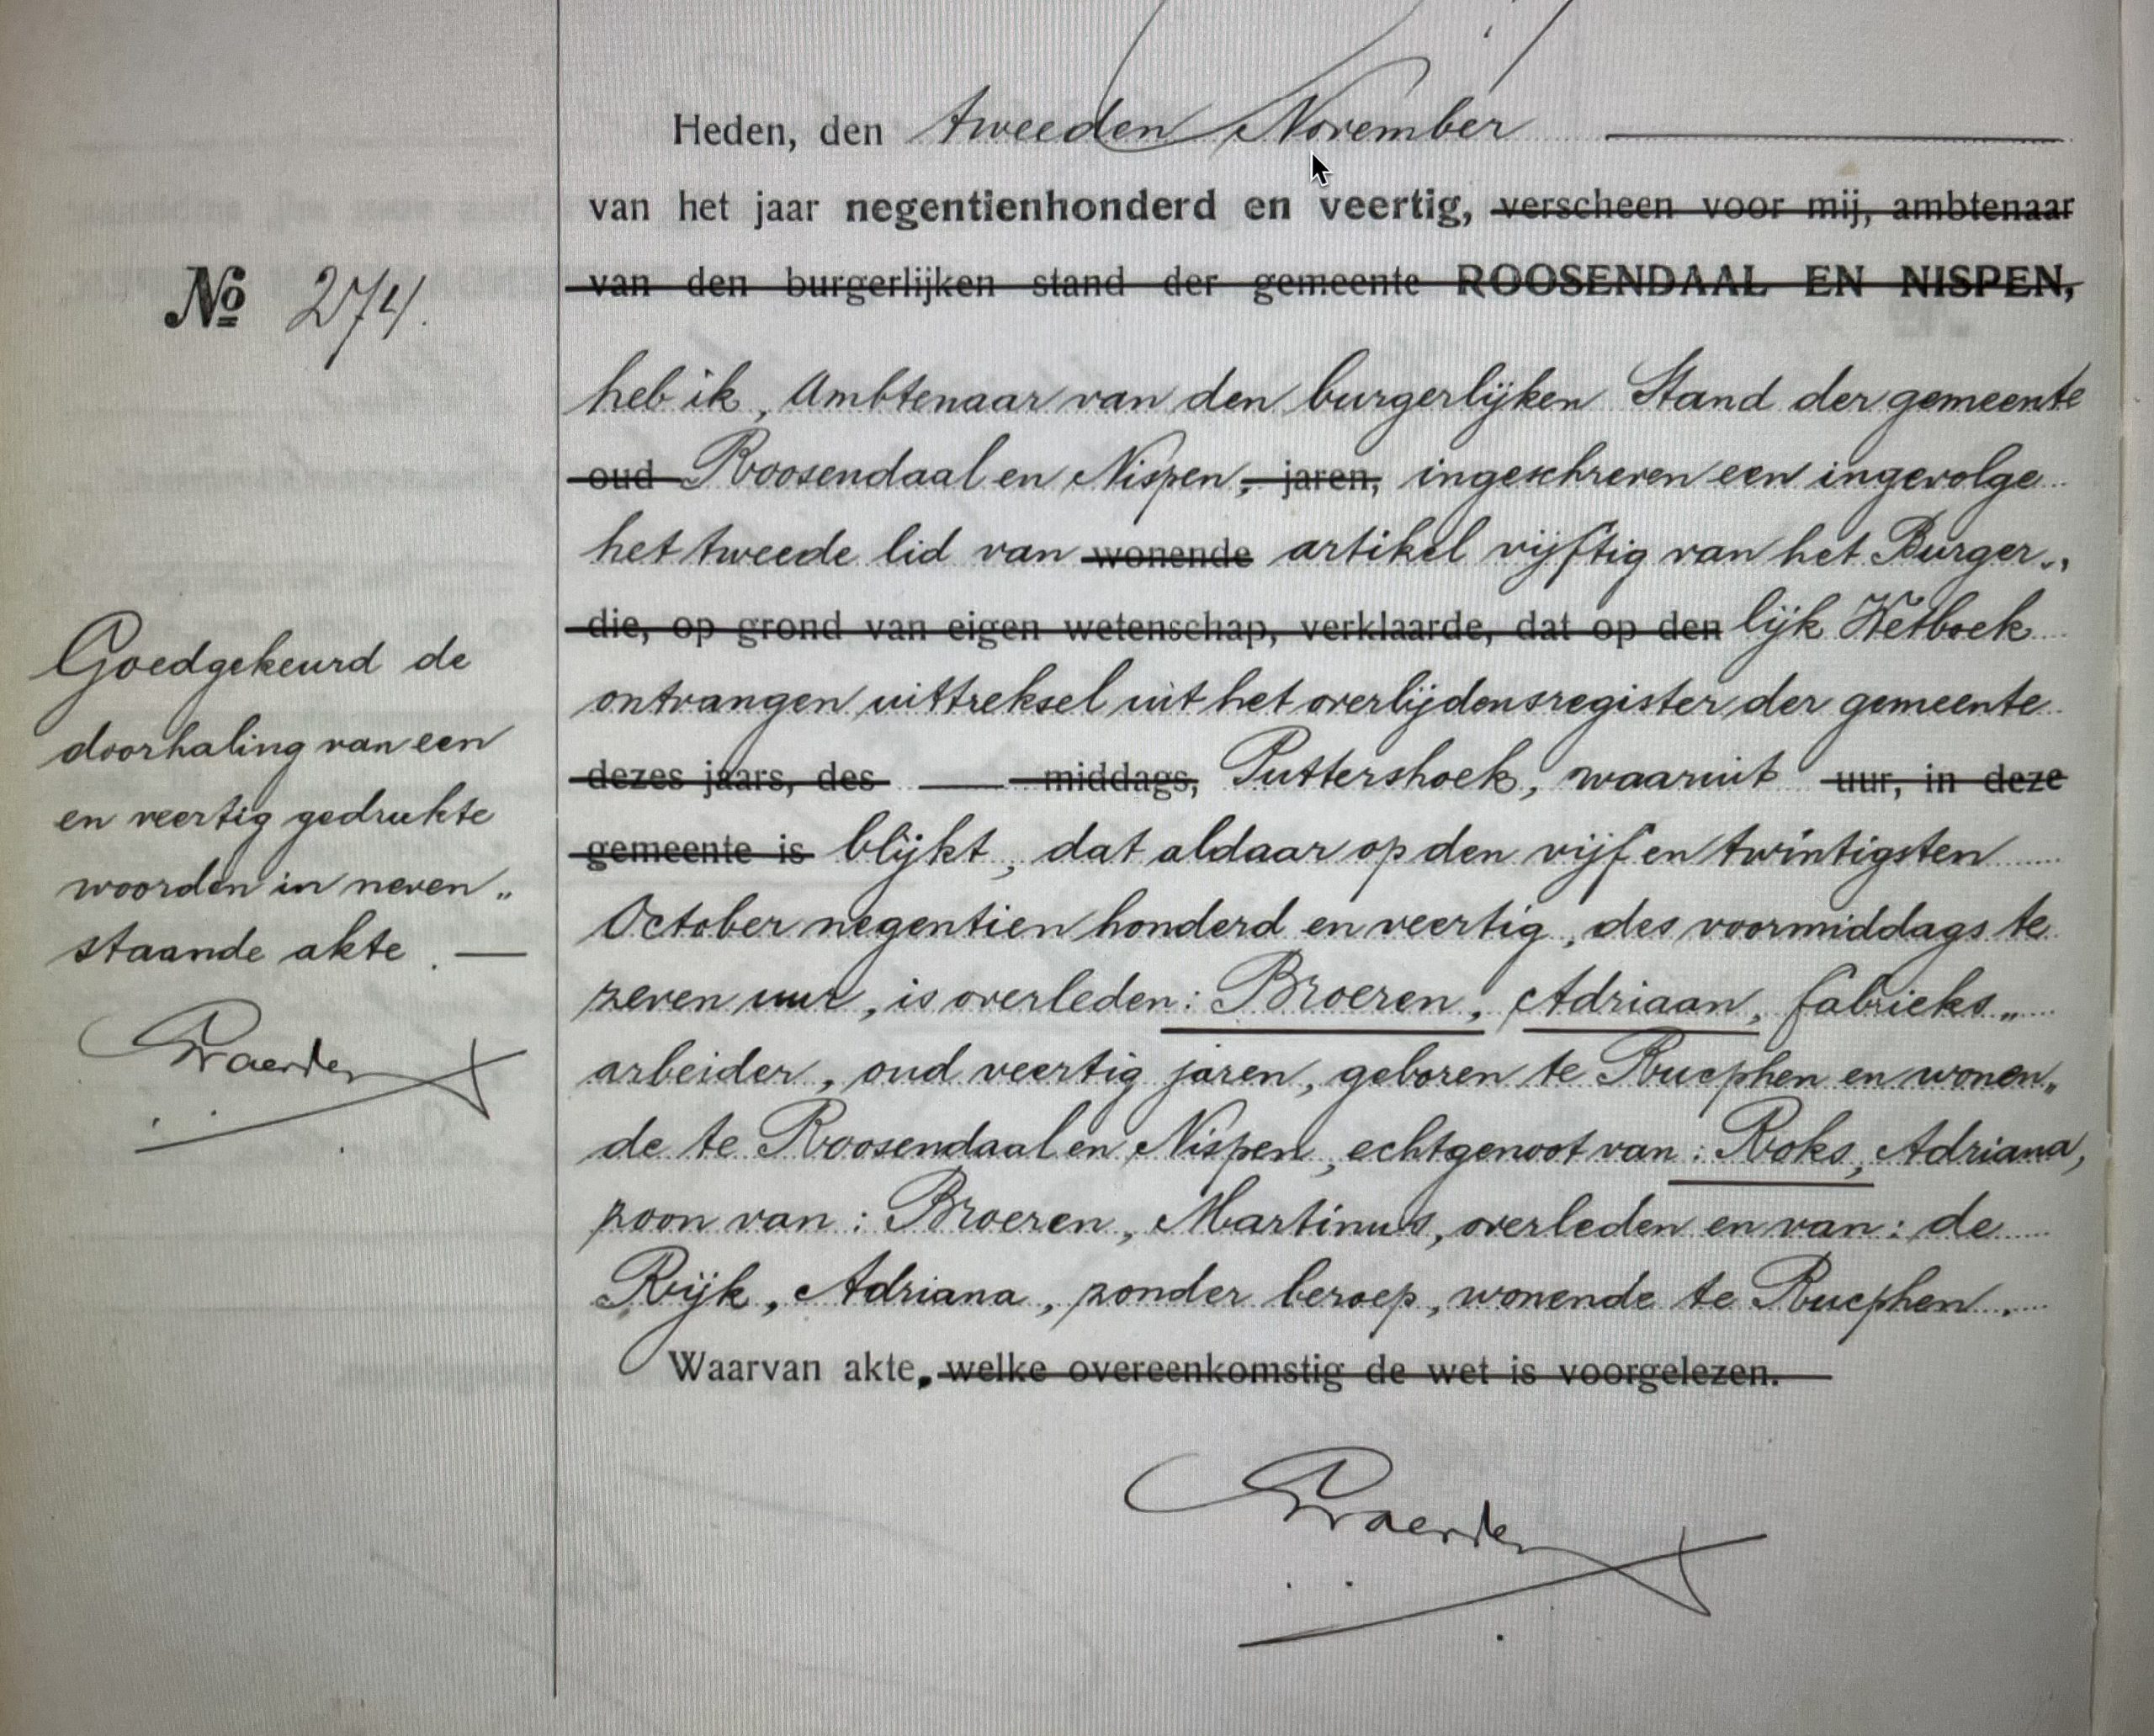 Heden, den tweeden November
van het jaar negentienhonderd en veertig, verscheen voor mij, ambtenaar
van den burgerlijken stand der gemeente ROOSENDAAL EN NISPEN,
No 274.
heb ik, Ambtenaar van den burgerlijken Stand der gemeente
oud Roosendaal en Nispen, jaren, ingeschreven een ingevolge
het tweede lid van wonende artikel vijftig van het Burger„
die, op grond van eigen wetenschap, verklaarde, dat op den lijk Wetboek
ontvangen uittreksel uit het overlijdensregister der gemeente
dezes jaars, des middags, Puttershoek, waaruit uur, in deze
gemeente is blijkt, dat aldaar op den vijf en twintigsten
October negentien honderd en veertig, des voormiddags te
zeven uur, is overleden: Broeren, Adriaan, fabrieks„
arbeider, oud veertig jaren, geboren te Rucphen en wonen„
de te Roosendaal en Nispen, echtgenoot van: Roks, Adriana,
zoon van: Broeren, Martinus, overleden en van: de
Rijk, Adriana, zonder beroep, wonende te Rucphen.
Waarvan akte, welke overeenkomstig de wet is voorgelezen.
Goedgekeurd de
doorhaling van een
en veertig gedrukte
woorden in neven„
staande akte.